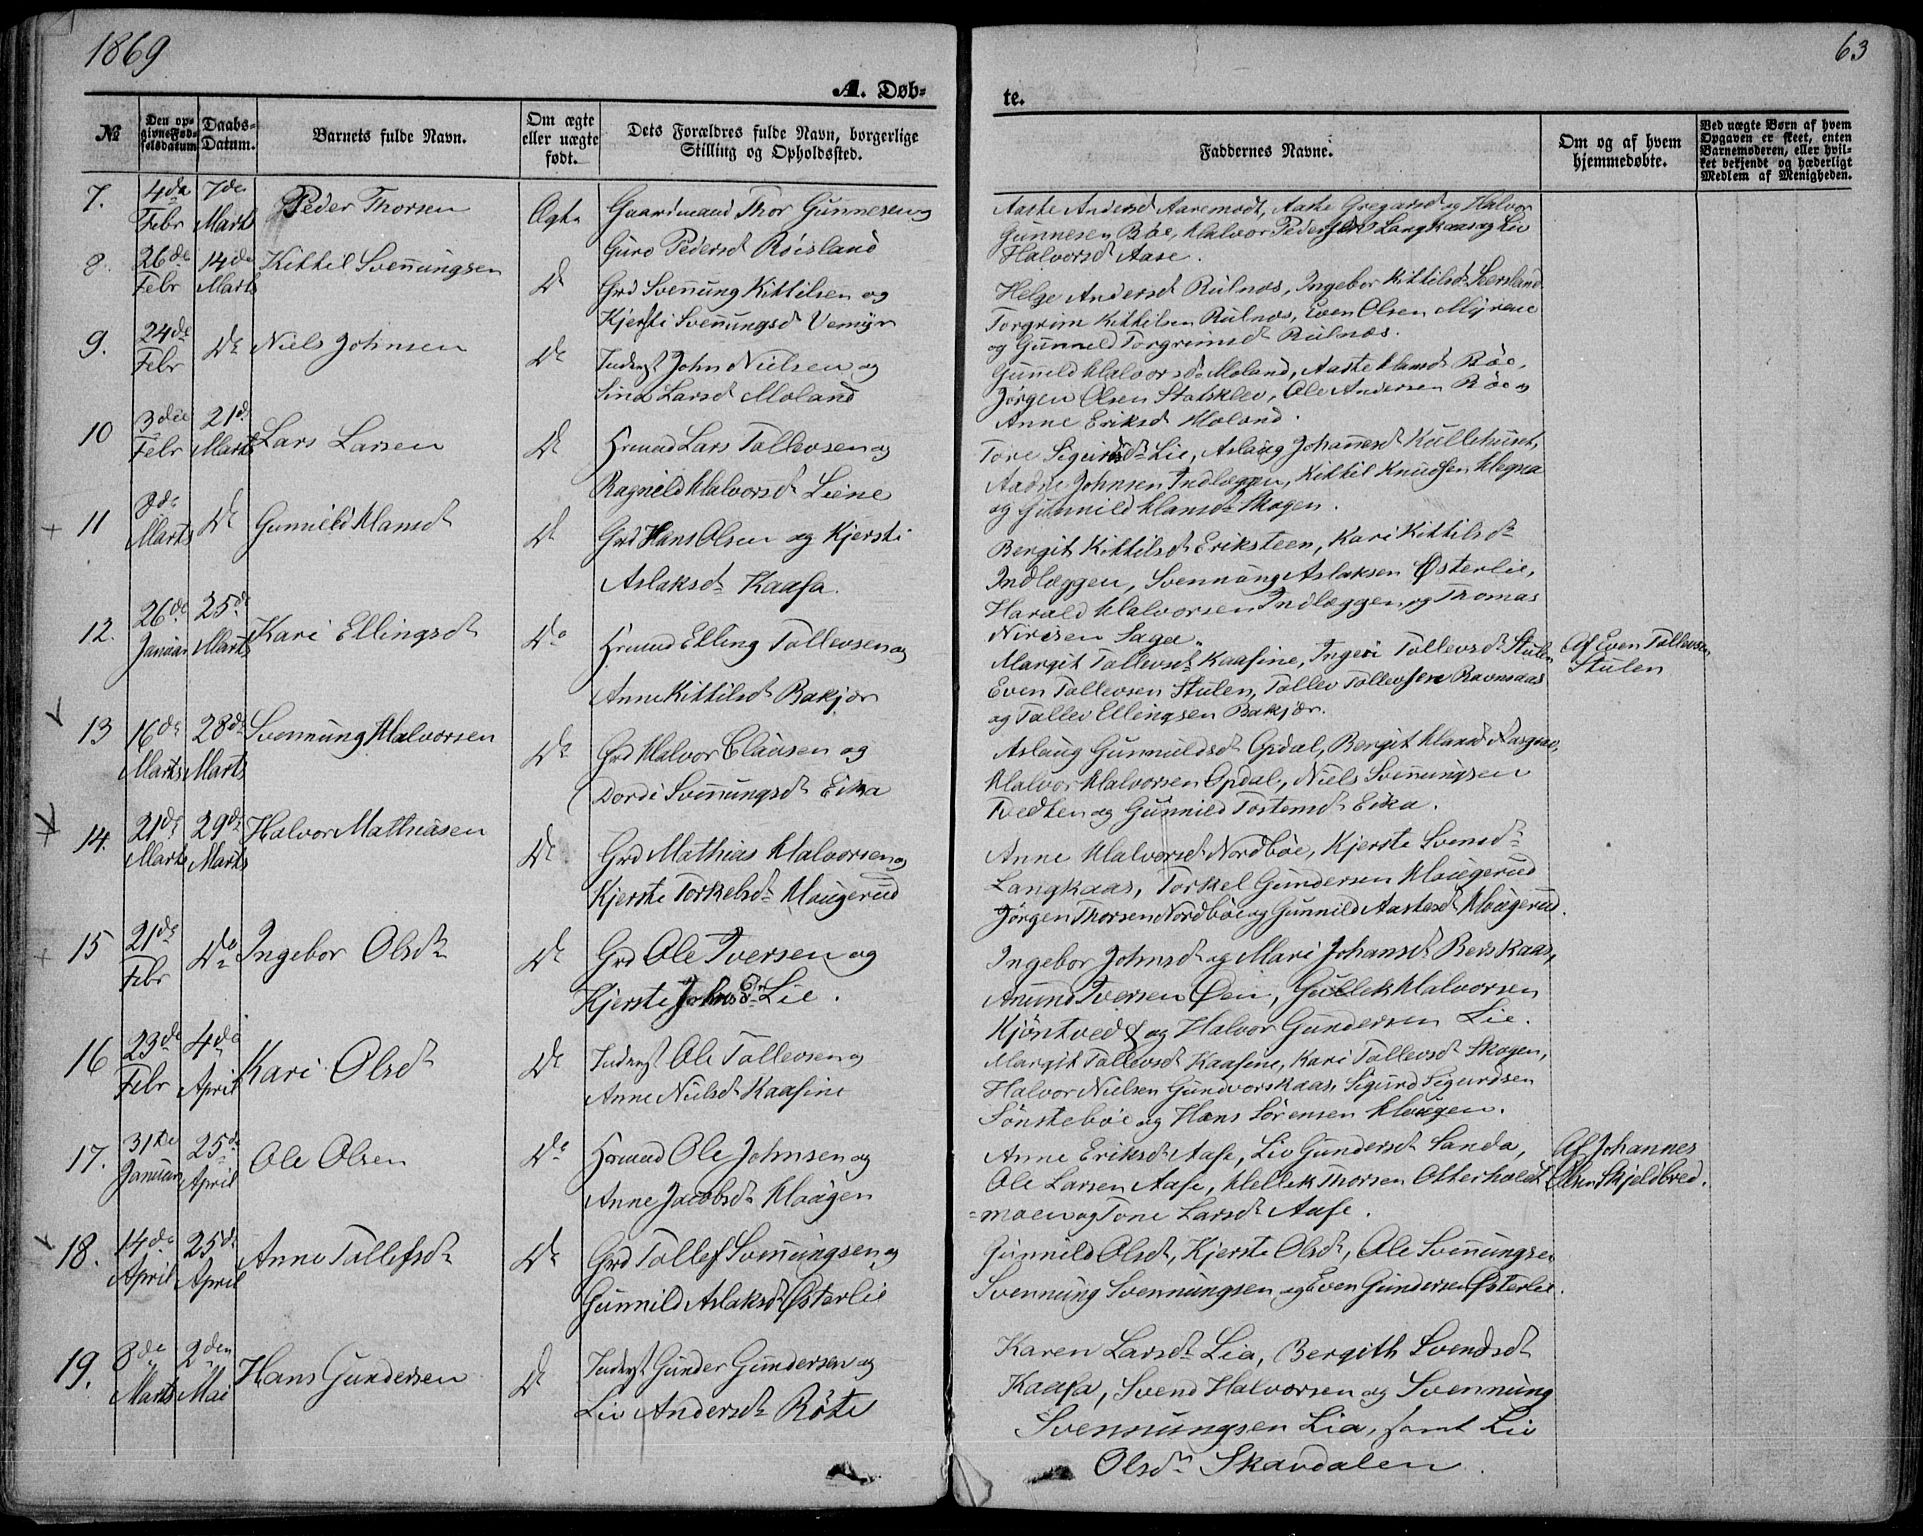 1869
63
A. Døb-
te.
№
Den op-
givne Fød-
selsdatum
Daabs-
Datum.
Barnets fulde Navn.
Om ægte
eller uægte
født.
Dets Forældres fulde Navn, borgerlige
Stilling og Opholdssted.
Faddernes Navne.
Om og af hvem
hjemmedøbte.
Ved uægte Børn af hvem
Opgaven er skeet, enten
Barnemoderen, eller hvil-
ket bekjendt og hæderligt
Medlem af Menigheden.
7.
4de
Febr
7de
Marts
Peder Thorsen
Ægte
Gaardmand Thor Gunnesen og
Guro Pedersd Röisland
Aaste Andersd Aaremodt, Aaste Gregarsd og Halvor
Gunnesen Böe, Halvor Pedersen Langkaas og Liv
Halvorsd Aase.
8.
26de
Febr
14de
Marts
Kittil Svennungsen
Do
Grd Svennung Kittilsen og
Kjersti Svennungsd Vemyr
Helge Andersd Rulnæs, Ingebor Kittilsd
Torgrim Kittilsen Rulnæs, Even Olsen Myrene
og Gunneld Torgrimsd Rulnæs.
9.
24de
Febr
Do
Niels Johnsen
Do
Inderst John Nielsen og
Sina Larsd Moland
Gunneld Halvorsd Moland, Aaste Hansd Böe,
Jørgen Olsen Statsklev, Ole Andersen Böe og
Anne Eriksd Moland.
10
3die
Febr
21de
Marts
Lars Larsen
Do
Hrmnd Lars Tollevsen og
Ragnild Halvorsd Liene
Tone Sigurdsd Lie, Aslaug Johannesd Kullehuset,
Aadne Johnsen Indlæggen, Kittil Knudsen Hegna
og Gunnild Hansd Skogen.
11
8de
Marts
Do
Gunnild Hansd
Do
Grd Hans Olsen og Kjersti
Aslaksd Kaasa.
Bergit Kittilsd Eriksteen, Kari Kittilsd
Indlæggen, Svennung Aslaksen Østerlie,
Harald Halvorsen Indlæggen og Thomas
Nirisen Saga.
12.
26de
Januar
25de
Marts
Kari Ellingsd
Do
Hrmnd Elling Tollevsen og
Anne Kittilsd Bakjær
Margit Tollevsd Kaasine, Ingeri Tollevsd Stulen
Even Tollevsen Stulen, Tollev Tollevsen Ravnaas
og Tollev Ellingsen Bakjær.
Af Even Tollevsen
Stulen
13
16de
Marts
28de
Marts
Svennung Halvorsen
Do
Grd Halvor Clausen og
Dordi Svennungsd Eika
Aslaug Gunnuldsd Opdal, Bergit Hansd
Halvor Halvorsen Opdal, Niels Svennungsen
Tvedten og Gunnild Tostensd Eika.
14.
21de
Marts
29de
Marts
Halvor Mathiasen
Do
Grd Mathias Halvorsen og
Kjerste Torkelsd Haugerud
Anne Halvorsd Nordböe, Kjerste Svensd
Langkaas, Torkel Gundersen Haugerud
Jørgen Thorsen Nordböe og Gunnild Aastesd Haugerud.
15
21de
Febr
Do
Ingebor Olsd
Do
Grd Ole Iversen og
Kjerste Johnsd Lie.
Ingebor Johnsd og Mari Johansd Berskaas,
Anund Iversen Øen, Gullek Halvorsen
Kjöntvedt og Halvor Gundersen Lie.
16
23de
Febr
4de
April
Kari Olsd
Do
Inderst Ole Tollevsen og
Anne Nielsd Kaasine
Margit Tollevsd Kaasine, Kari Tollevsd Skogen,
Halvor Nielsen Gundvorskaas, Sigurd Sigurdsen
Sönsteböe og Hans Sörensen Haugen.
17.
31te
Januar
25de
April
Ole Olsen
Do
Hrmnd Ole Johnsen og
Anne Jacobsd Haugen
Anne Eriksd Aase, Liv Gundersd Sanda,
Ole Larsen Aase, Hellek Thorsen Otterholdt
=moen og Tone Larsd Aase.
Af Johannes
Olsen Skjeldbred.
18.
14de
April
25de
April
Anne Tollefsd
Do
Grd Tollef Svennungsen og
Gunnild Aslaksd Østerlie
Gunnild Olsd, Kjerste Olsd, Ole Svennungsen
Svennung Svennungsen og Even Gundersen Østerlie.
19.
8de
Marts
2den
Mai
Hans Gundersen
Do
Inderst Gunder Gundersen og
Liv Andersd Röte
Karen Larsd Lia, Bergith Svendsd
Kaasa, Svend Halvorsen og Svennung
Svennungsen Lia, samt Liv
Olsd Skavdalen.